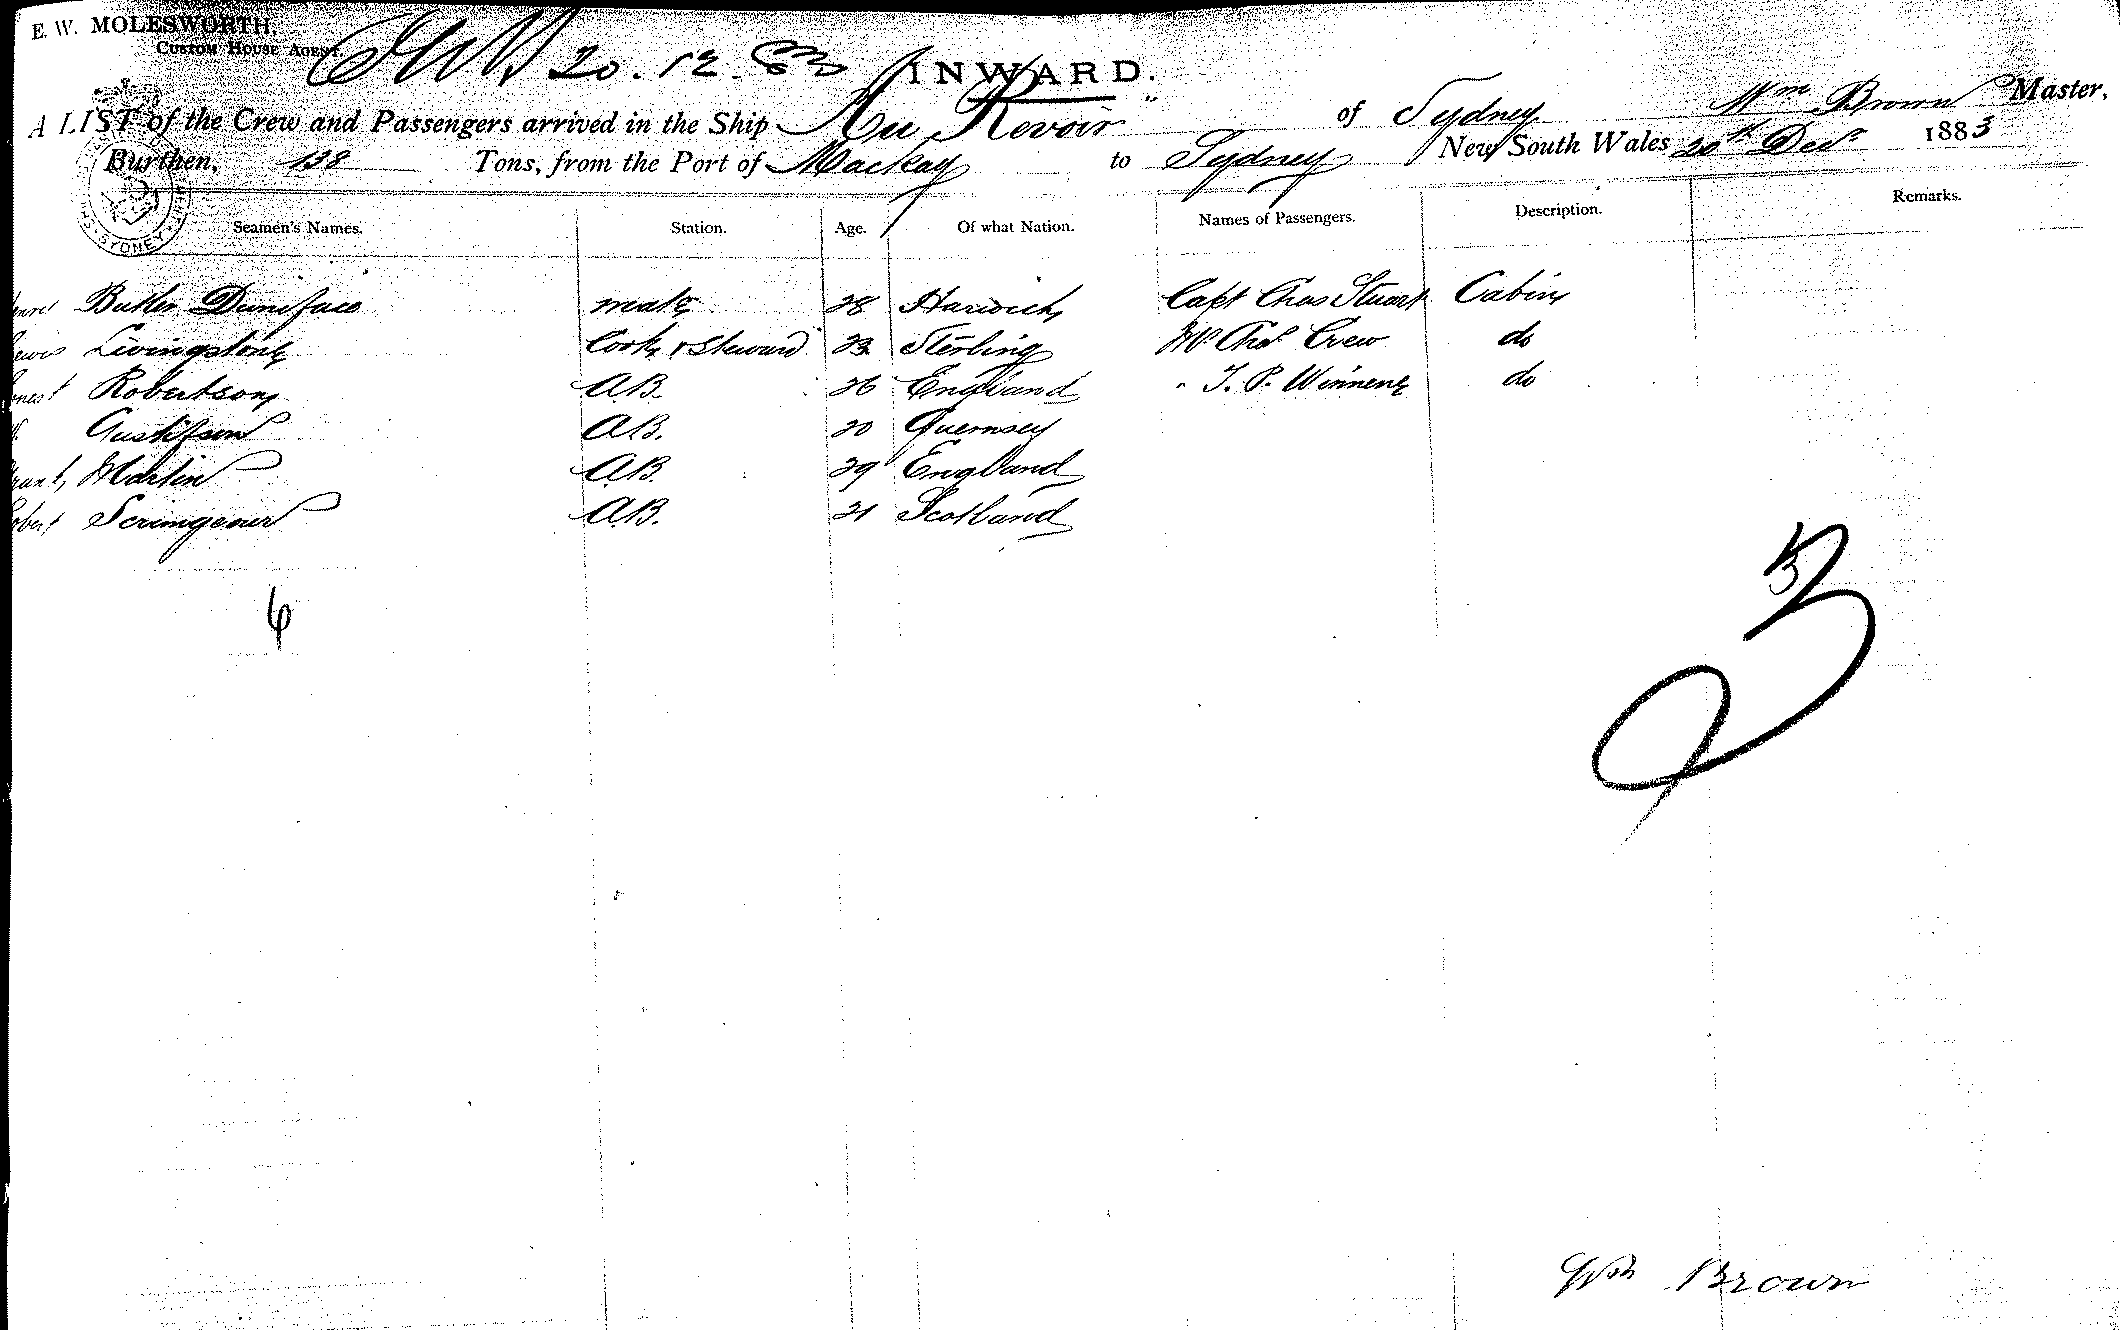 E. W. MOLESWORTH,
Custom House Agent.
20.12.83
INWARD.
A LIST of the Crew and Passengers arrived in the Ship "Au Revoir" of Sydney Wm Brown Master,
Burthen, 138 Tons, from the Port of Mackay to Sydney New South Wales 20th Decr 1883
Seamen's Names. Station. Age. Of what Nation. Names of Passengers. Description. Remarks.
Butler Duniface mate 28 Harwich Capt Chas Stuart Cabin
Livingstone Cook & Steward 23 Sterling Mr Chas Crew do
Robertson A.B. 26 England " J. P. Winnene do
Gustifson A.B. 20 Guernsey
Martin A.B. 29 England
Scrimgeour A.B. 21 Scotland
SYDNEY
6
3
Wm Brown